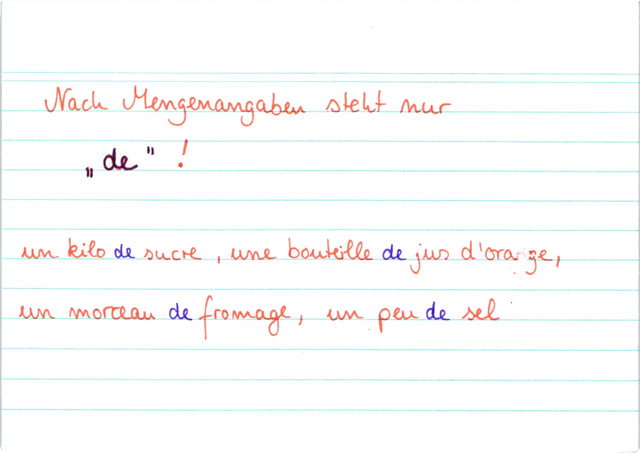 Nach Mengenangaben steht nur
„de" !
un kilo de sucre, une bouteille de jus d'orange,
un morceau de fromage, un peu de sel